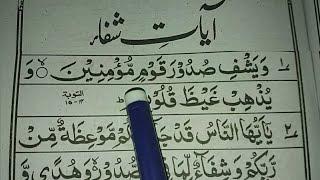 آیاتِ شفاء
۱ وَيَشْفِ صُدُوْرَ قَوْمٍ مُّؤْمِنِيْنَ ۙ وَ
يُذْهِبْ غَيْظَ التوبة ۱۴-۱۵
۲ يٰۤاَيُّهَا النَّاسُ قَدْ مَّوْعِظَةٌ مِّنْ
رَّبِّكُمْ وَشِفَآءٌ لِّمَا وَهُدًى وَّ